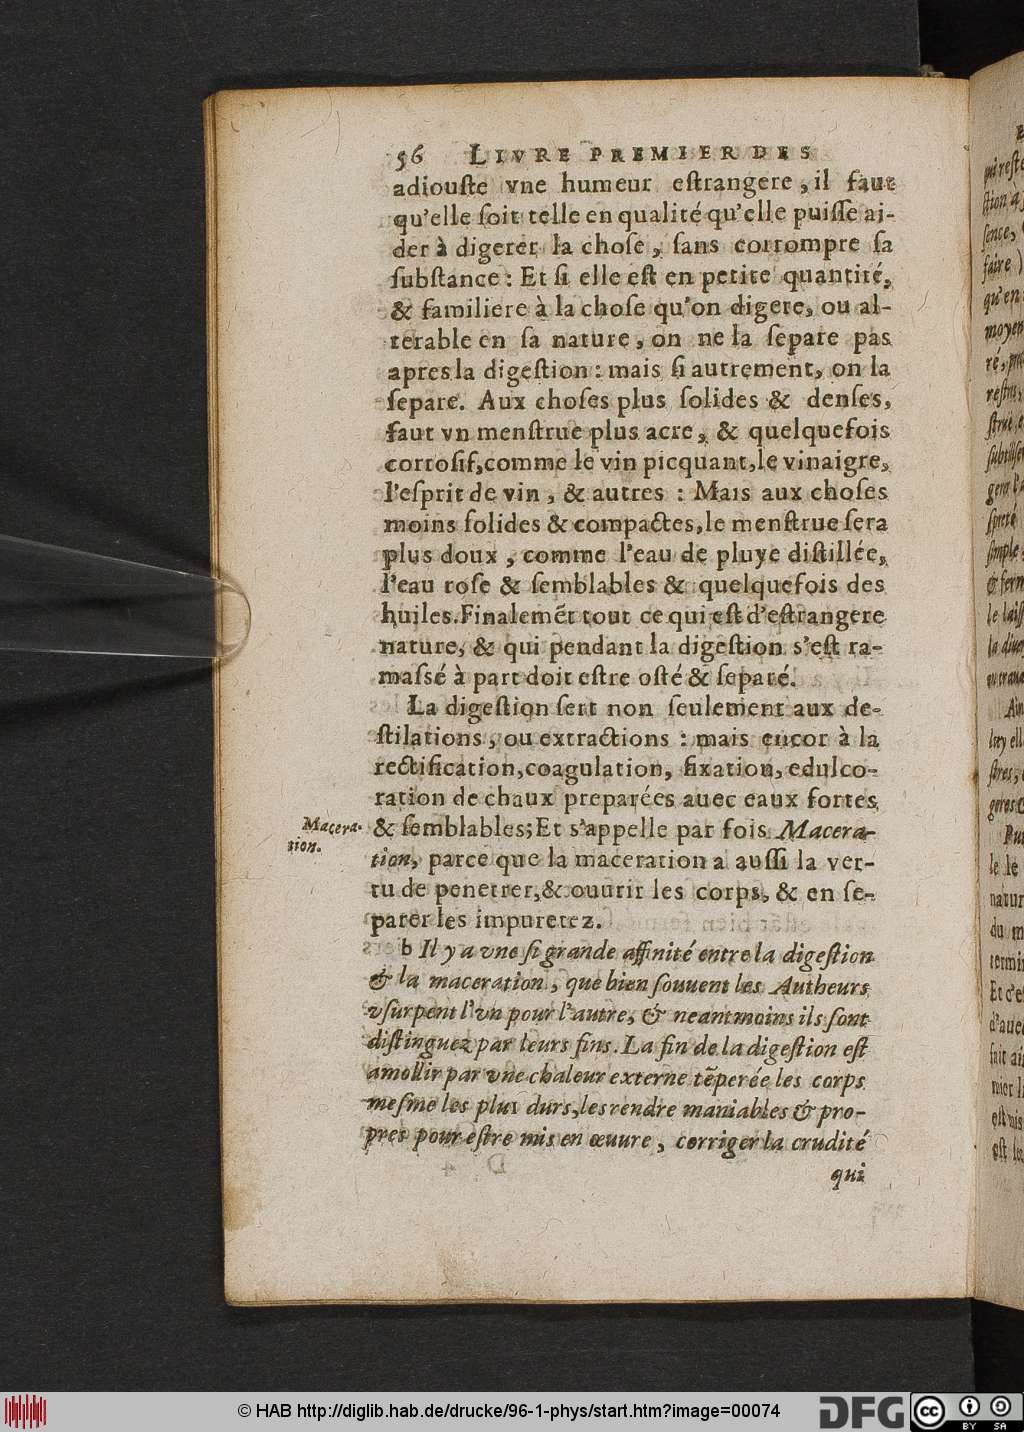 56 LIVRE PREMIER DES
adiouſte vne humeur eſtrangere, il faut
qu'elle ſoit telle en qualité qu'elle puiſſe ai-
der à digerer la choſe, ſans corrompre ſa
ſubſtance: Et ſi elle eſt en petite quantité,
& familiere à la choſe qu'on digere, ou al-
terable en ſa nature, on ne la ſepare pas
apres la digeſtion: mais ſi autrement, on la
ſepare. Aux choſes plus ſolides & denſes,
faut vn menſtrue plus acre, & quelquefois
corroſif, comme le vin picquant, le vinaigre,
l'eſprit de vin, & autres: Mais aux choſes
moins ſolides & compactes, le menſtrue ſera
plus doux, comme l'eau de pluye diſtillée,
l'eau roſe & ſemblables & quelquefois des
huiles. Finalemẽt tout ce qui eſt d'eſtrangere
nature, & qui pendant la digeſtion s'eſt ra-
maſsé à part doit eſtre oſté & ſeparé.
La digeſtion ſert non ſeulement aux de-
ſtilations, ou extractions: mais encor à la
rectification, coagulation, fixation, edulco-
ration de chaux preparées auec eaux fortes
& ſemblables; Et s'appelle par fois Macera-
tion, parce que la maceration a auſſi la ver-
tu de penetrer, & ouurir les corps, & en ſe-
parer les impuretez.
Macera-
tion.
b Il y a vne ſi grande affinité entre la digeſtion
& la maceration, que bien ſouuent les Autheurs
vſurpent l'vn pour l'autre, & neantmoins ils ſont
diſtinguez par leurs fins. La fin de la digeſtion eſt
amollir par vne chaleur externe tẽperée les corps
meſme les plus durs, les rendre maniables & pro-
pres pour eſtre mis en œuure, corriger la crudité
qui
© HAB http://diglib.hab.de/drucke/96-1-phys/start.htm?image=00074
DFG
cc BY SA